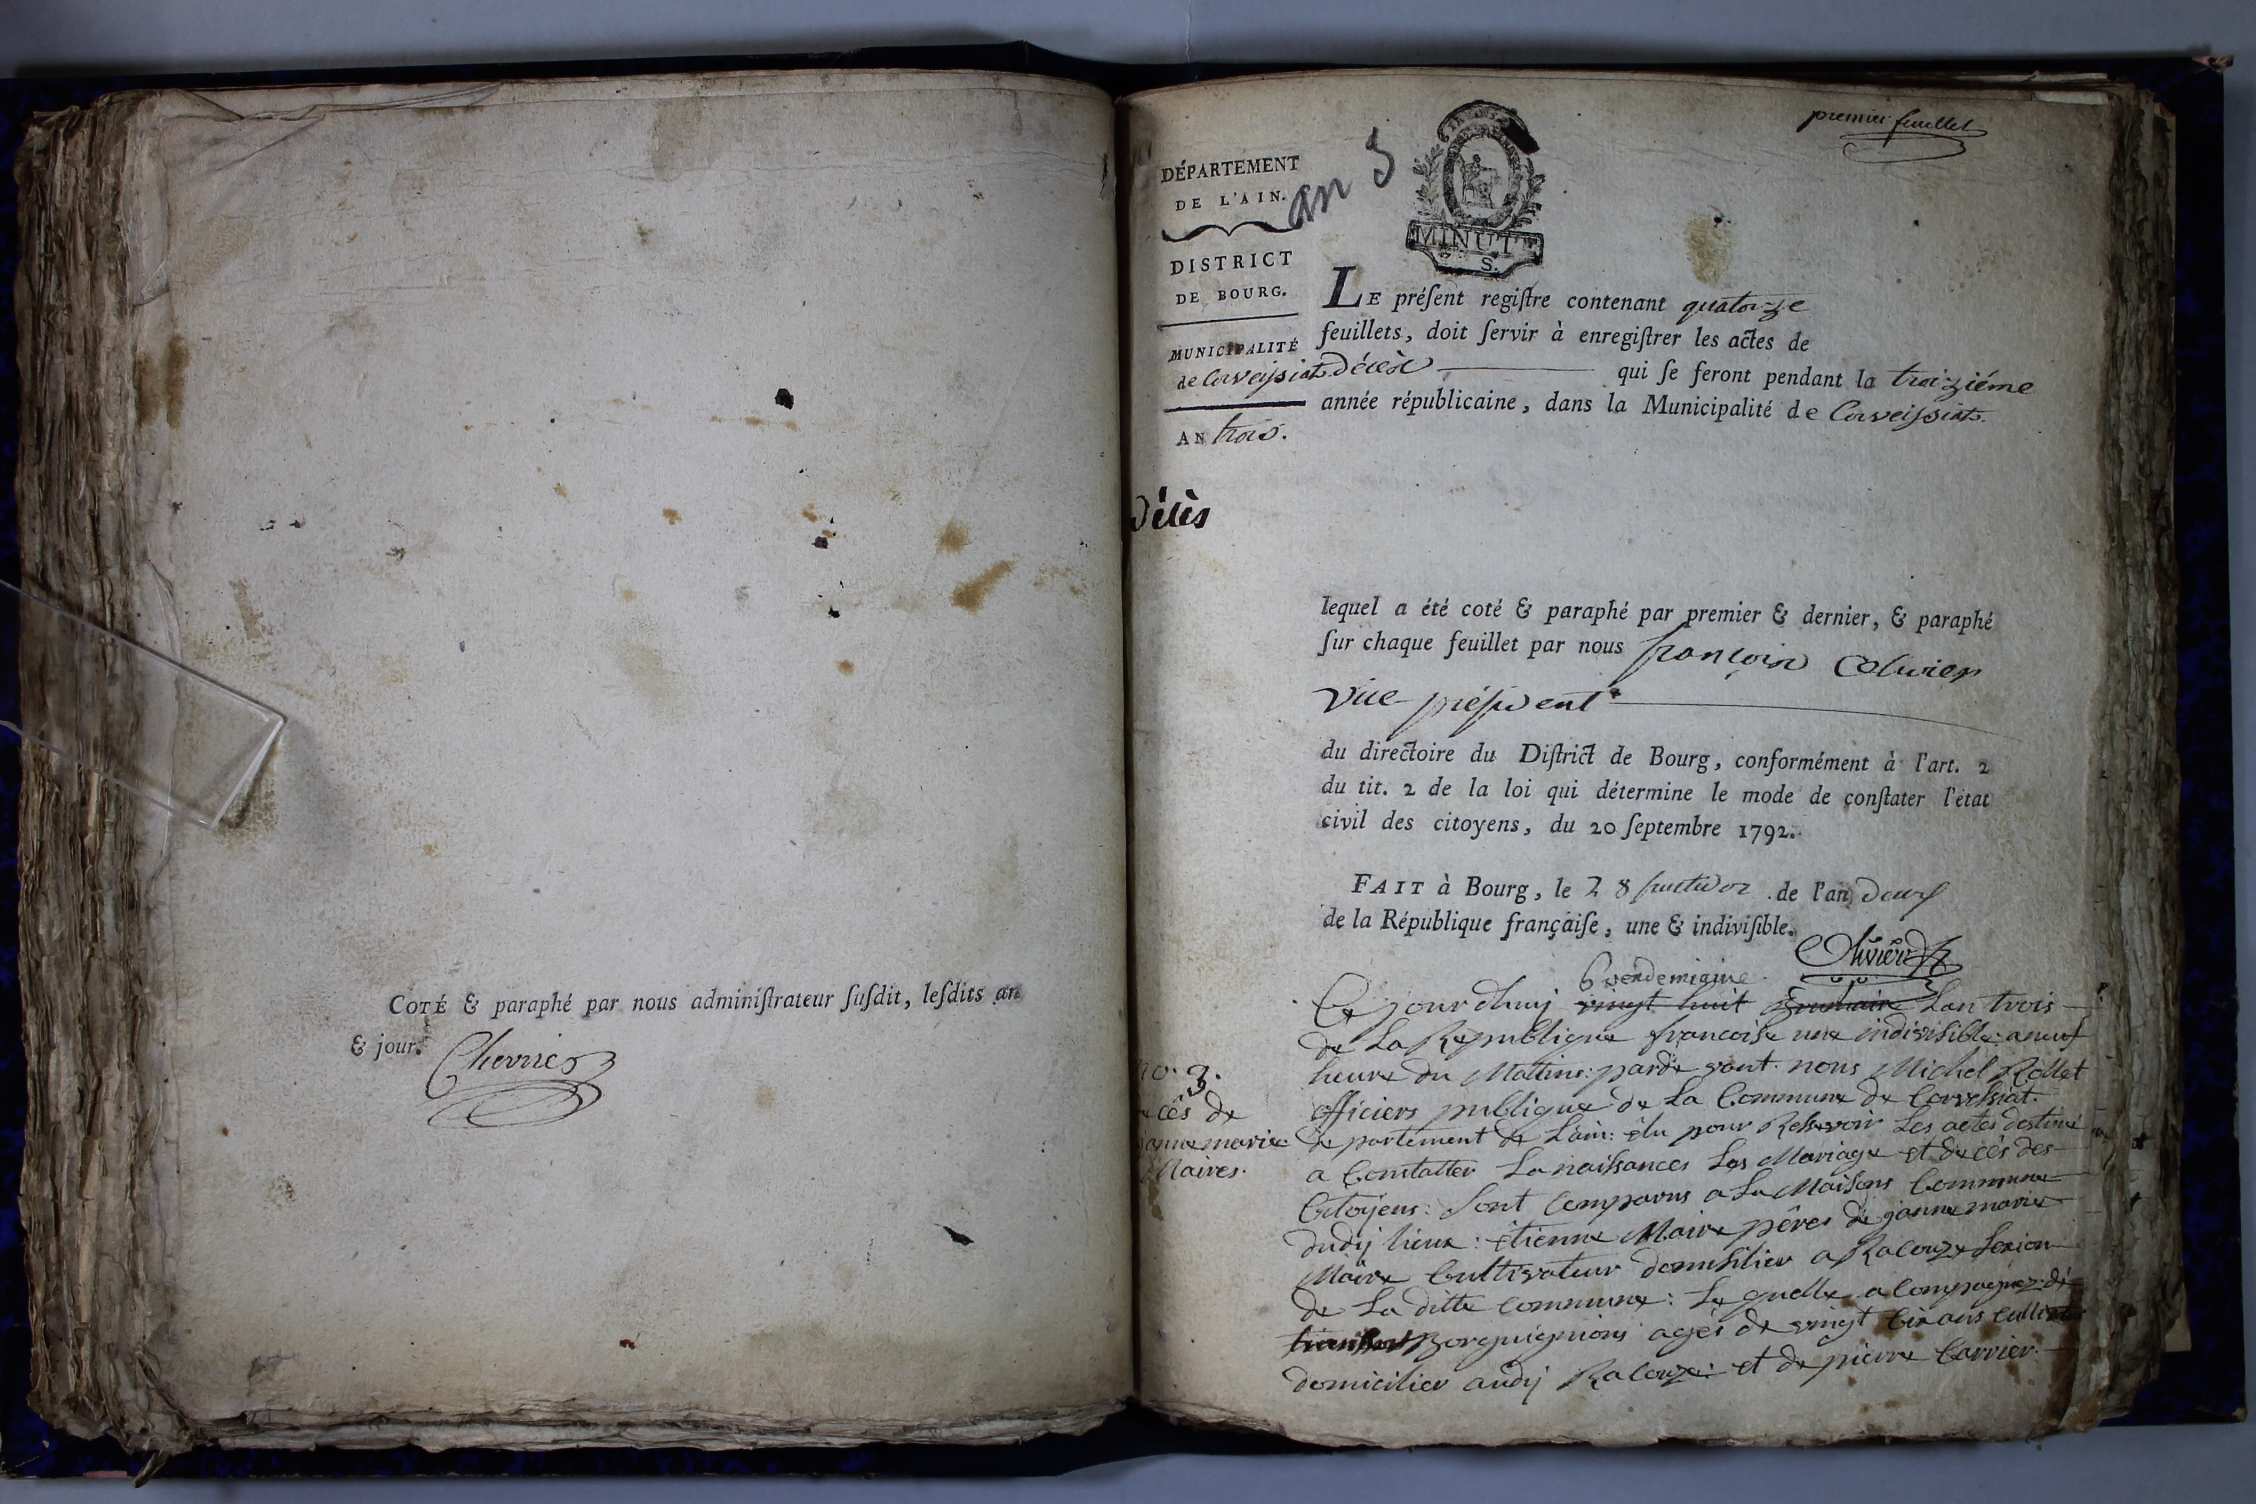 COTÉ & paraphé par nous adminiſtrateur ſuſdit, leſdits an
& jour.
Chevrier
premier feuillet
an 3
MINUT
S.
DÉPARTEMENT
DE L'AIN.
DISTRICT
DE BOURG.
MUNICIPALITÉ
de Corveissiat
AN trois.
Décès
LE préſent regiſtre contenant quatorze
feuillets, doit ſervir à enregiſtrer les actes de
Décès qui ſe feront pendant la troiziéme
année républicaine, dans la Municipalité de Corveissiat.
lequel a été coté & paraphé par premier & dernier, & paraphé
ſur chaque feuillet par nous françois Olivier
vice-président
du directoire du Diſtrict de Bourg, conformément à l'art. 2
du tit. 2 de la loi qui détermine le mode de conſtater l'état
civil des citoyens, du 20 ſeptembre 1792.
FAIT à Bourg, le 28 fructidor de l'an deux
de la République françaiſe, une & indiviſible.
Olivier
no. 3.
cês de
janne marie
Maires.
6 vendemiaire
Ce jourdhuij vingt huit brumaire Lan trois
de La Republique francoise une indivisible a neuf
heure du Mattins: parde vant nous Michel Rollet
officiers publique de La Commune de Corvessiat.
de partement de L'ain: élu pour Resevoir Les actes destiné
a Constatter La naissances Les Mariage et decês des
Citoÿens: Sont comparus a La Maisons Commune
dudij lieux: étienne Maire pêres de janne marie
Maire Cultivateur domisilier a Racouze Sexion
de La ditte commune: Le quelle a compagnez de
Borguignions agés de vingt six ans
domicilier audij Racouze: et de pierre Carrier.